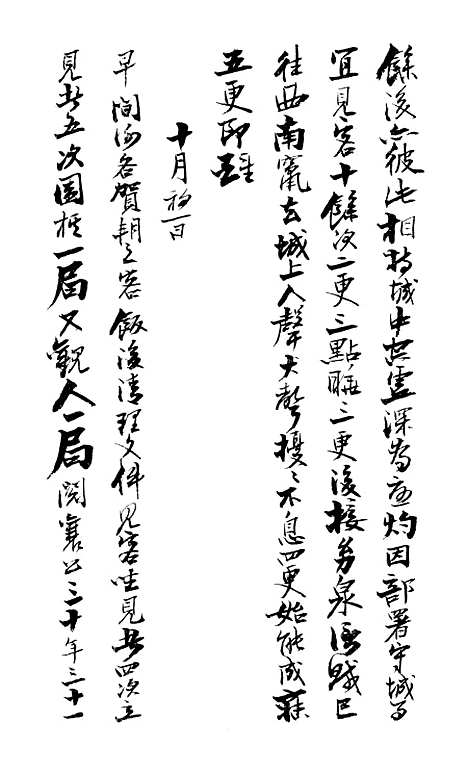 餘后亦彼此相持城中空虛深為焦灼因部署守城事
宜見客十餘次二更三點睡三更後接劣泉信賊已
往西南竄去城上人聲犬聲擾擾不息四更始能成寐
五更即醒
十月初一日
早間謝各賀朔之客飯後清理文件見客坐見者四次立
見者五次圍棋一局又觀人一局閱襄公三十年三十一